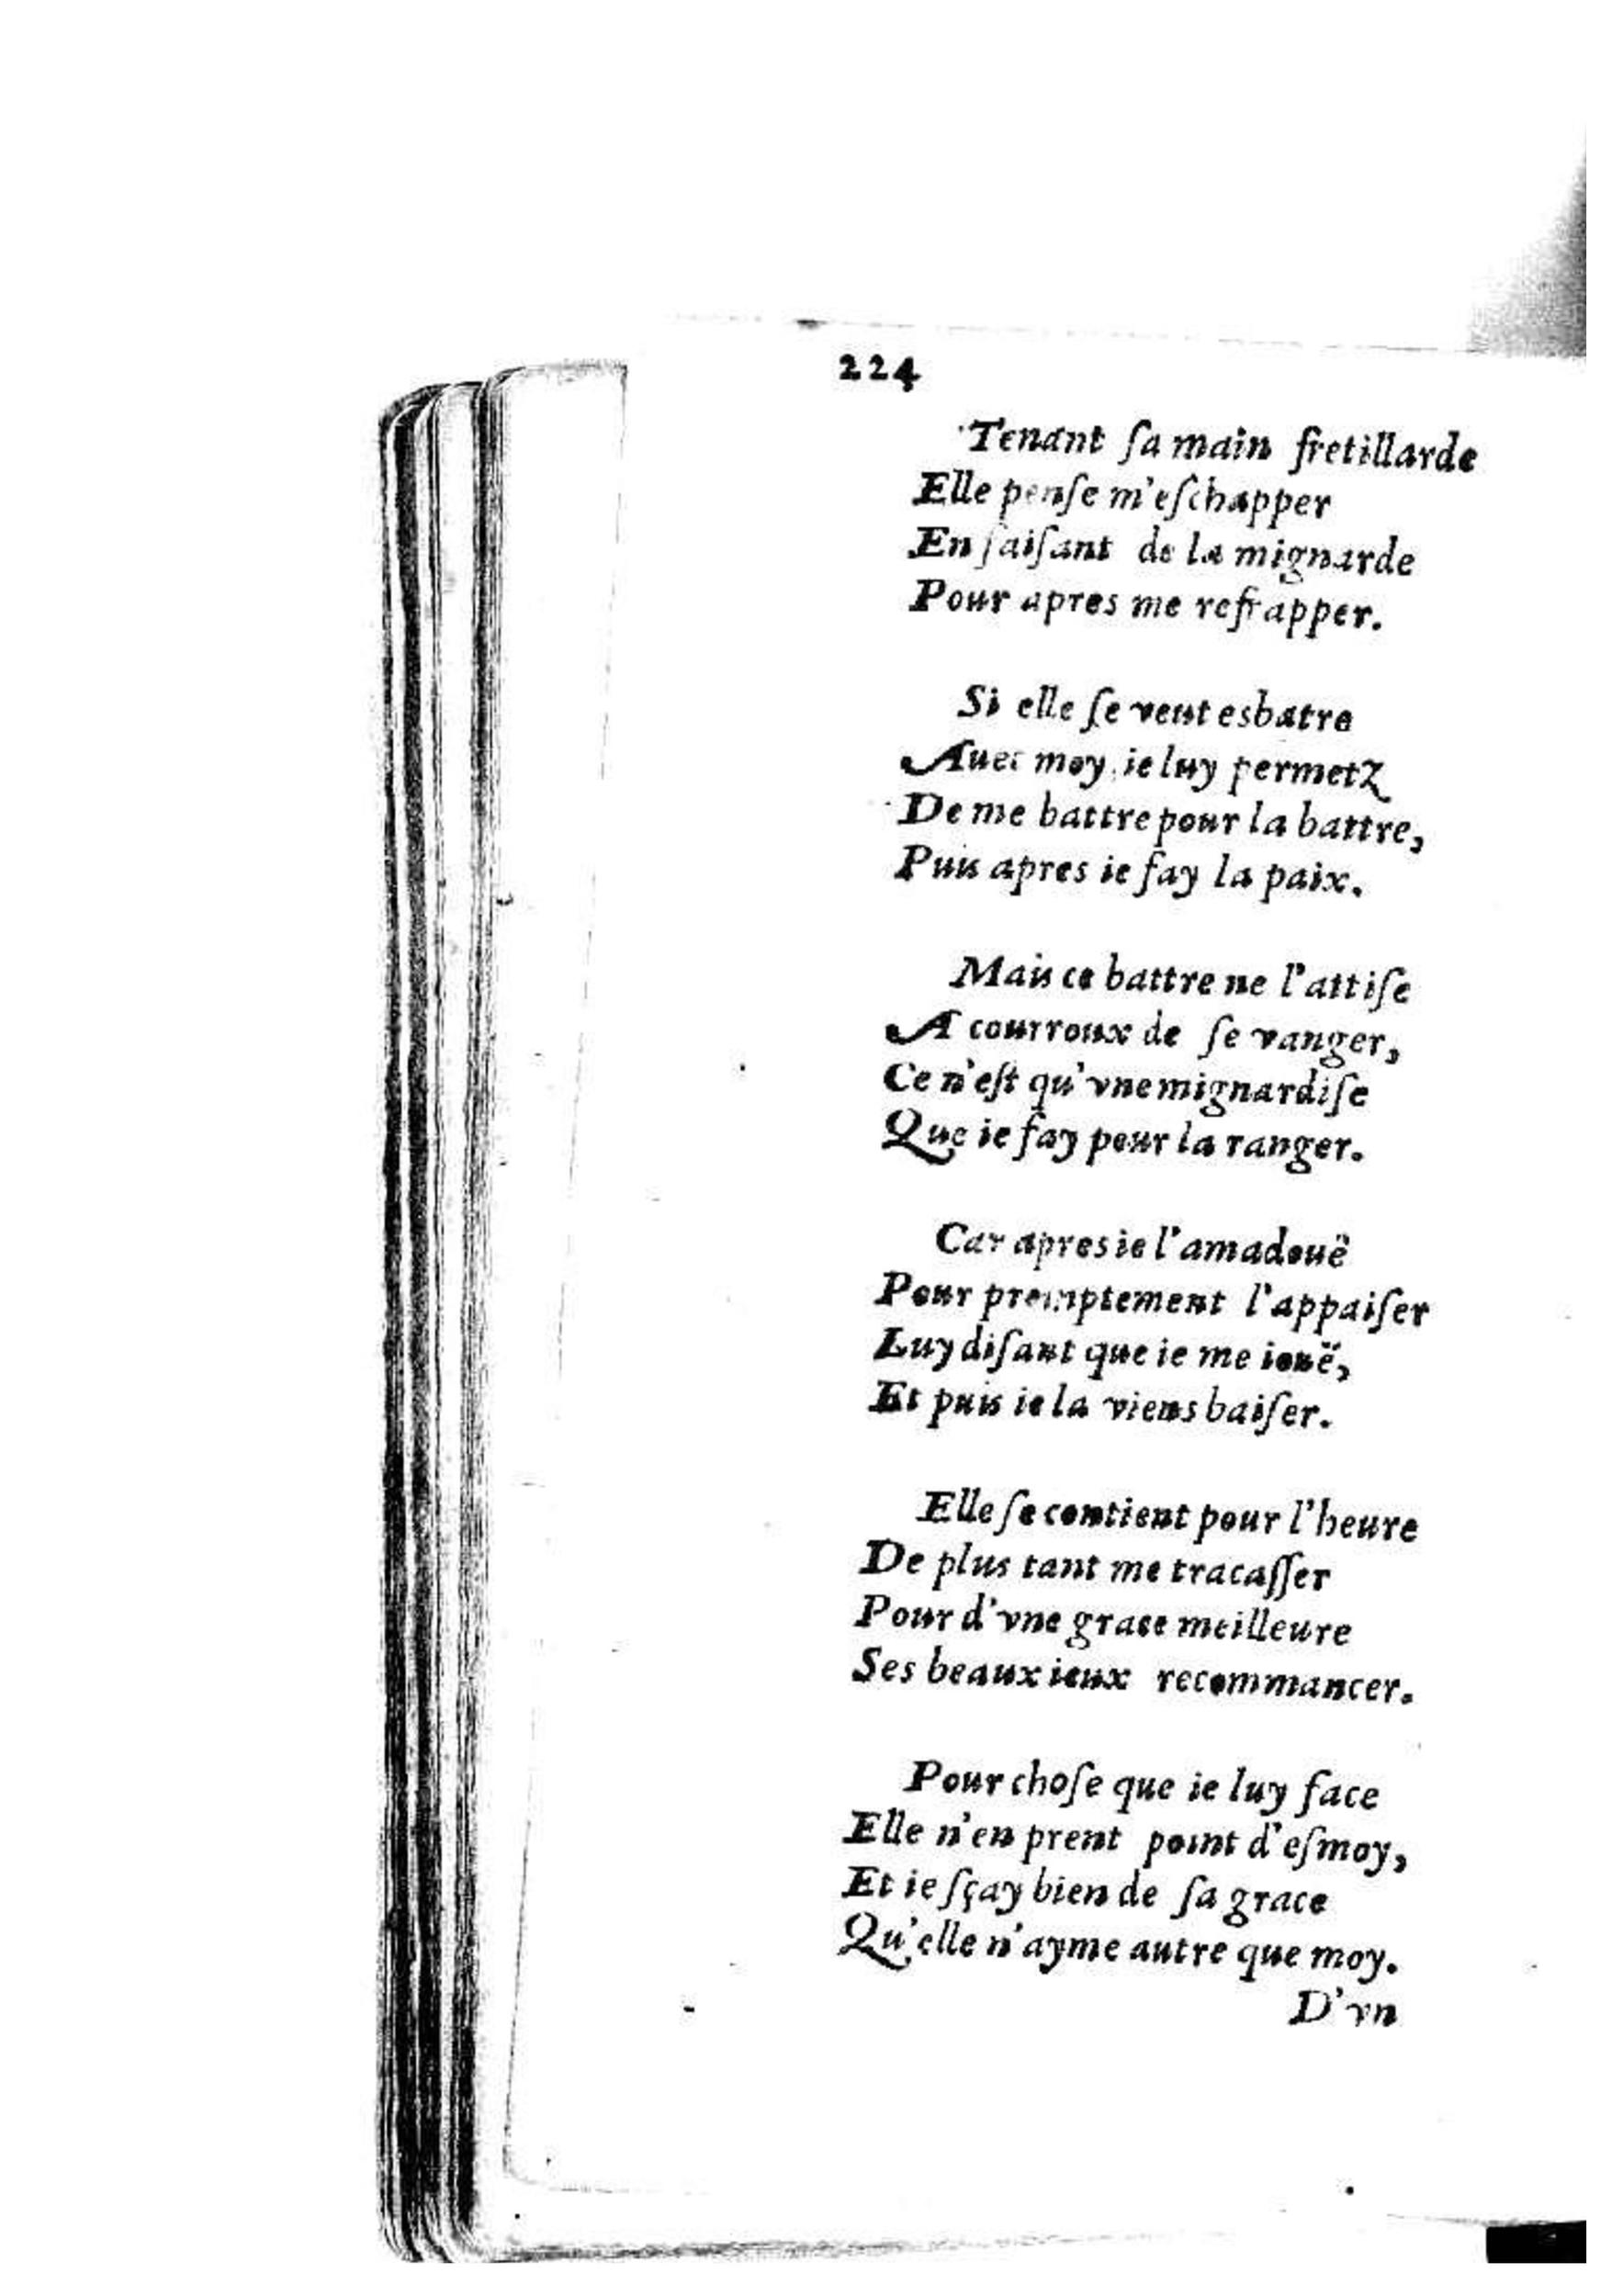 224
Tenant ſa main fretillarde
Elle penſe m'eſchapper
En faiſant de la mignarde
Pour apres me refrapper.
Si elle ſe veut esbatre
Auec moy, ie luy permetz
De me battre pour la battre,
Puis apres ie fay la paix.
Mais ce battre ne l'attiſe
A courroux de ſe vanger,
Ce n'eſt qu'vne mignardiſe
Que ie fay pour la ranger.
Car apres ie l'amadouë
Pour promptement l'appaiſer
Luy diſant que ie me iouë,
Et puis ie la viens baiſer.
Elle ſe contient pour l'heure
De plus tant me tracaſſer
Pour d'vne grace meilleure
Ses beaux ieux recommancer.
Pour choſe que ie luy face
Elle n'en prent point d'eſmoy,
Et ie ſçay bien de ſa grace
Qu'elle n'ayme autre que moy.
D'vn